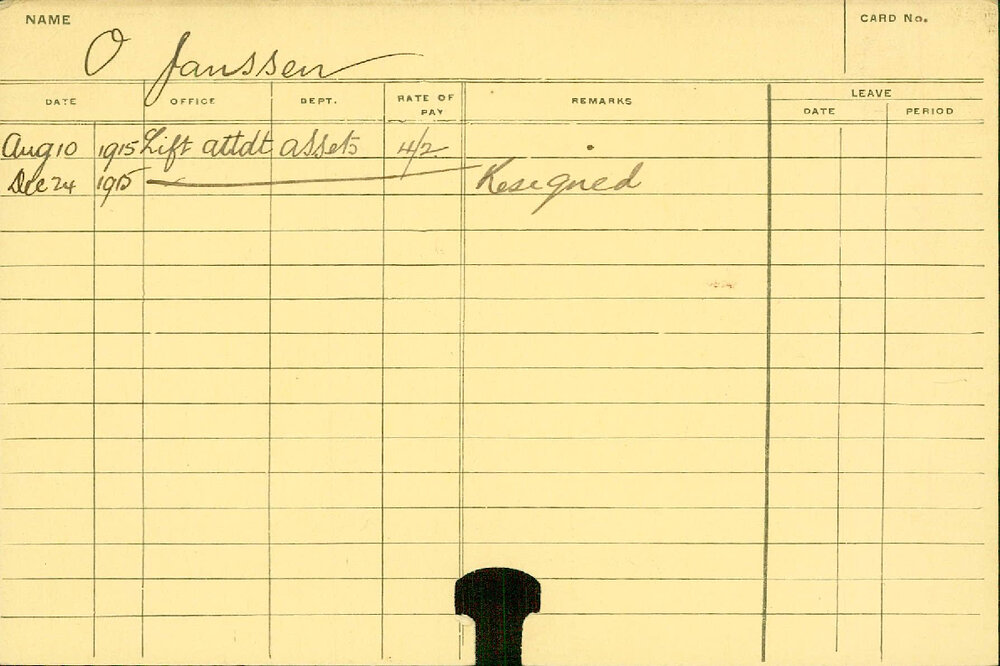 NAME
CARD No.
O Janssen
DATE OFFICE DEPT. RATE OF PAY REMARKS LEAVE
DATE PERIOD
Aug 10 1915 Lift attdt assets 4/2
Dec 24 1915 Resigned